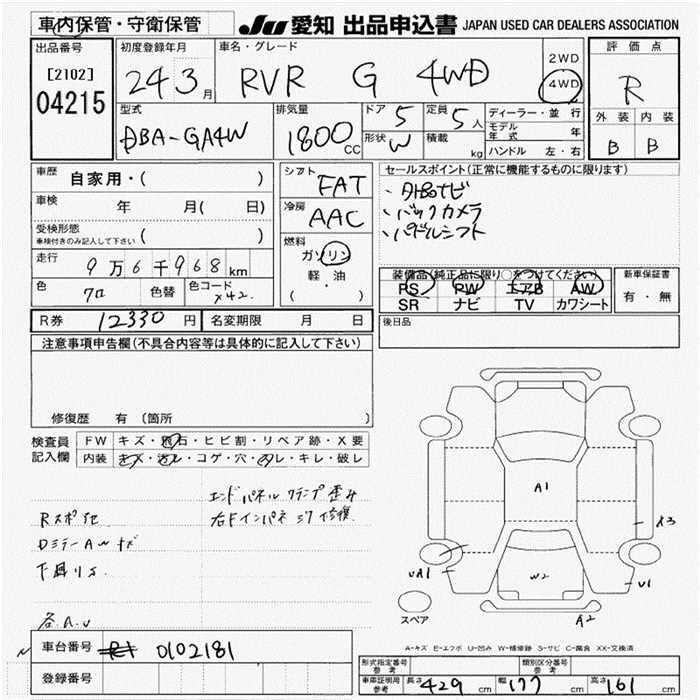 車内保管・守衛保管 JU 愛知 出品申込書 JAPAN USED CAR DEALERS ASSOCIATION
出品番号 初度登録年月 車名・グレード 評価点
[2102] 24 3月 RVR G 4WD 2WD 4WD R
04215
型式 排気量 ドア 5 定員 5人 ディーラー・並行 外装 内装
DBA-GA4W 1800cc 形状 W 積載 kg モデル年式 年 B B
ハンドル 左・右
車歴 自家用・( ) シフト FAT セールスポイント(正常に機能するものに限ります)
車検 年 月( 日) 冷房 AAC ・外品ナビ
受検形態 ( ) ・バックカメラ
車検付きのみ記入して下さい ・パドルシフト
走行 9万6千968km 燃料 ガソリン
軽・油
( ・ )
色 クロ 色替 色コード X42.
装備品(純正品に限り○をつけてください) 新車保証書
PS PW エアB AW 有・無
SR ナビ TV カワシート
R券 12330円 名変期限 月 日 後日品
注意事項申告欄(不具合内容等は具体的に記入して下さい)
修復歴 有 (箇所
検査員記入欄 FW キズ・飛石・ヒビ割・リペア跡・X要
内装 キズ・汚レ・コゲ・穴・スレ・キレ・破レ
エンドパネル クランプ歪み
右Fインパネ ミク 修復
DミラーAWキズ
下廻りS
A1
A3
UA1
W2
U1
A2
スペア
A-キズ E-エクボ U-凹み W-補修跡 S-サビ C-腐食 XX-交換済
車台番号 0102181
登録番号
型式指定番号 参考 類別区分番号 参考
車庫証明用 参考 長さ 429cm 幅 177cm 高さ 161cm